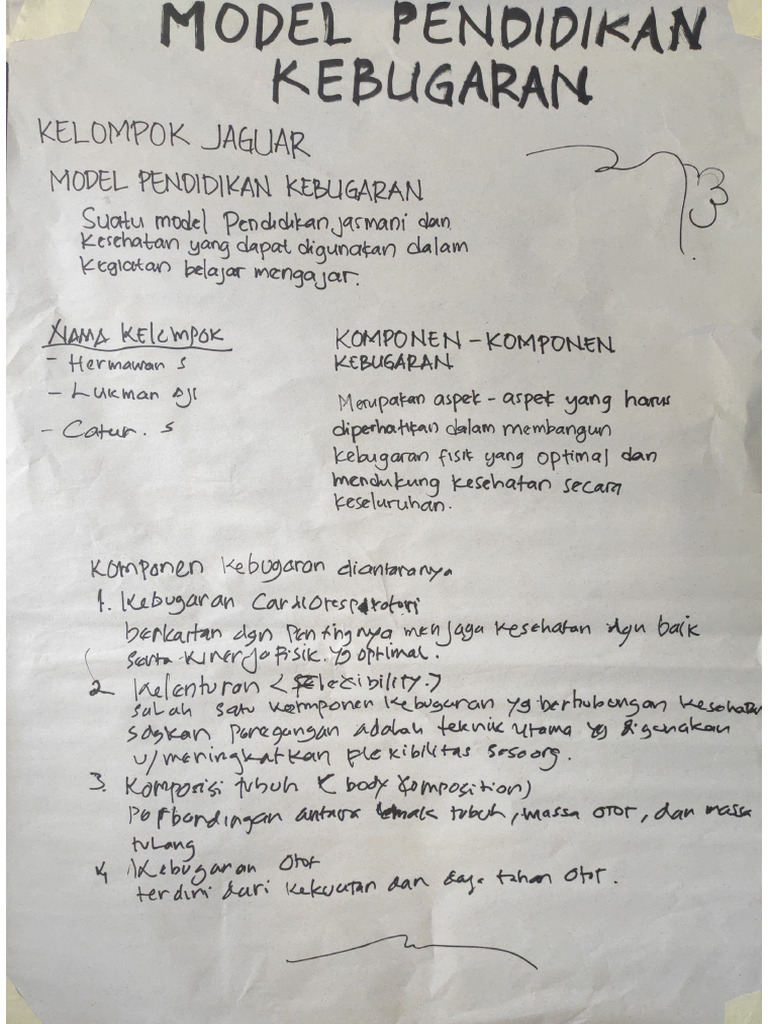 MODEL PENDIDIKAN
KEBUGARAN
KELOMPOK JAGUAR
MODEL PENDIDIKAN KEBUGARAN
Suatu model Pendidikan jasmani dan
Kesehatan yang dapat digunakan dalam
Kegiatan belajar mengajar.
NAMA KELOMPOK
- Hermawan S
- Lukman Aji
- Catur. S
KOMPONEN - KOMPONEN
KEBUGARAN
Merupakan aspek - aspek yang harus
diperhatikan dalam membangun
kebugaran fisik yang optimal dan
mendukung kesehatan secara
keseluruhan.
Komponen Kebugaran diantaranya
1. Kebugaran Cardiorespiratori
berkaitan dgn Pentingnya menjaga kesehatan dgn baik
serta kinerja fisik yg optimal.
2. Kelenturan (Flexibility.)
salah satu komponen kebugaran yg berhubungan kesehatan
sdgkan peregangan adalah teknik utama yg digunakan
u/ meningkatkan flexibilitas seseorg.
3. Komposisi tubuh (body Composition)
Perbandingan antara lemak tubuh, massa otot, dan massa
tulang
4. Kebugaran Otot
terdiri dari kekuatan dan daya tahan otot.